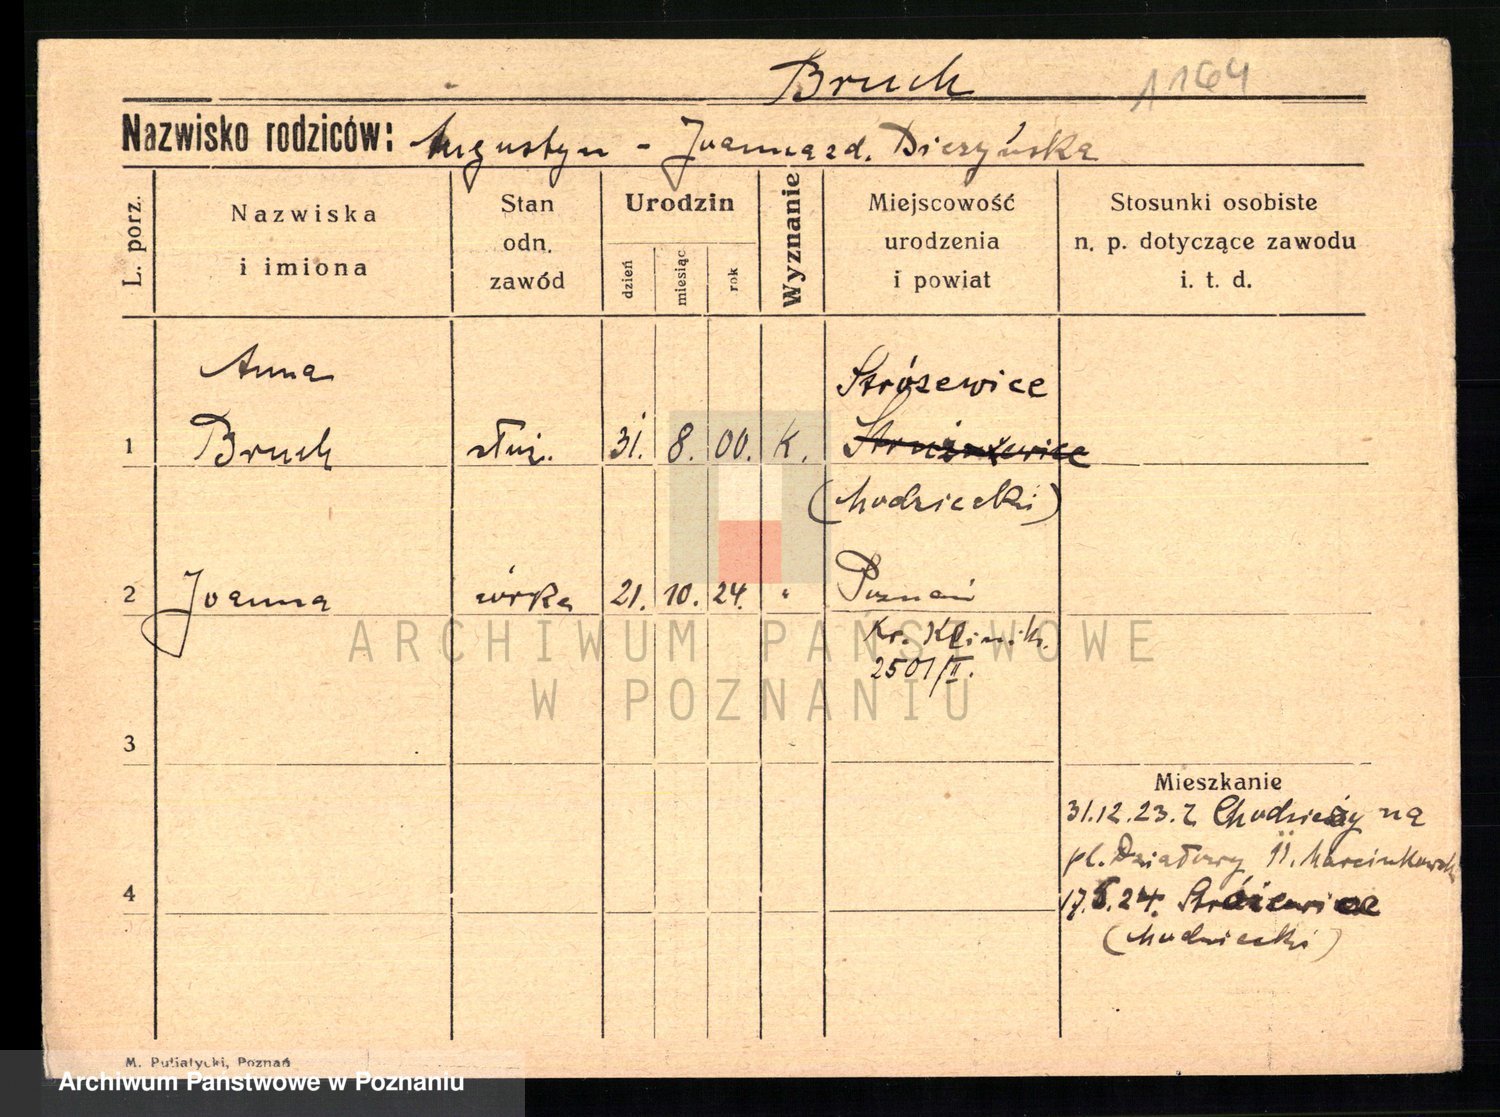 Bruch 1164
Nazwisko rodziców: Augustyn - Joanna zd. Dieżyńska
L. porz.
Nazwiska
i imiona
Stan
odn.
zawód
Urodzin
dzień
miesiąc
rok
Wyznanie
Miejscowość
urodzenia
i powiat
Stosunki osobiste
n. p. dotyczące zawodu
i. t. d.
Anna Strózewice
1 Bruch służ. 31. 8. 00. K.
(Chodzieski)
2 Joanna córka 21. 10. 24. " Poznań
Kr. Klinik.
2501/II.
ARCHIWUM PAŃSTWOWE
W POZNANIU
3
Mieszkanie
31.12.23. z Chodzieży na
pl. Działowy 11. Marcinkowsk
4 17.5.24. Strózewice
(Chodzieski)
M. Putiatycki, Poznań
Archiwum Państwowe w Poznaniu